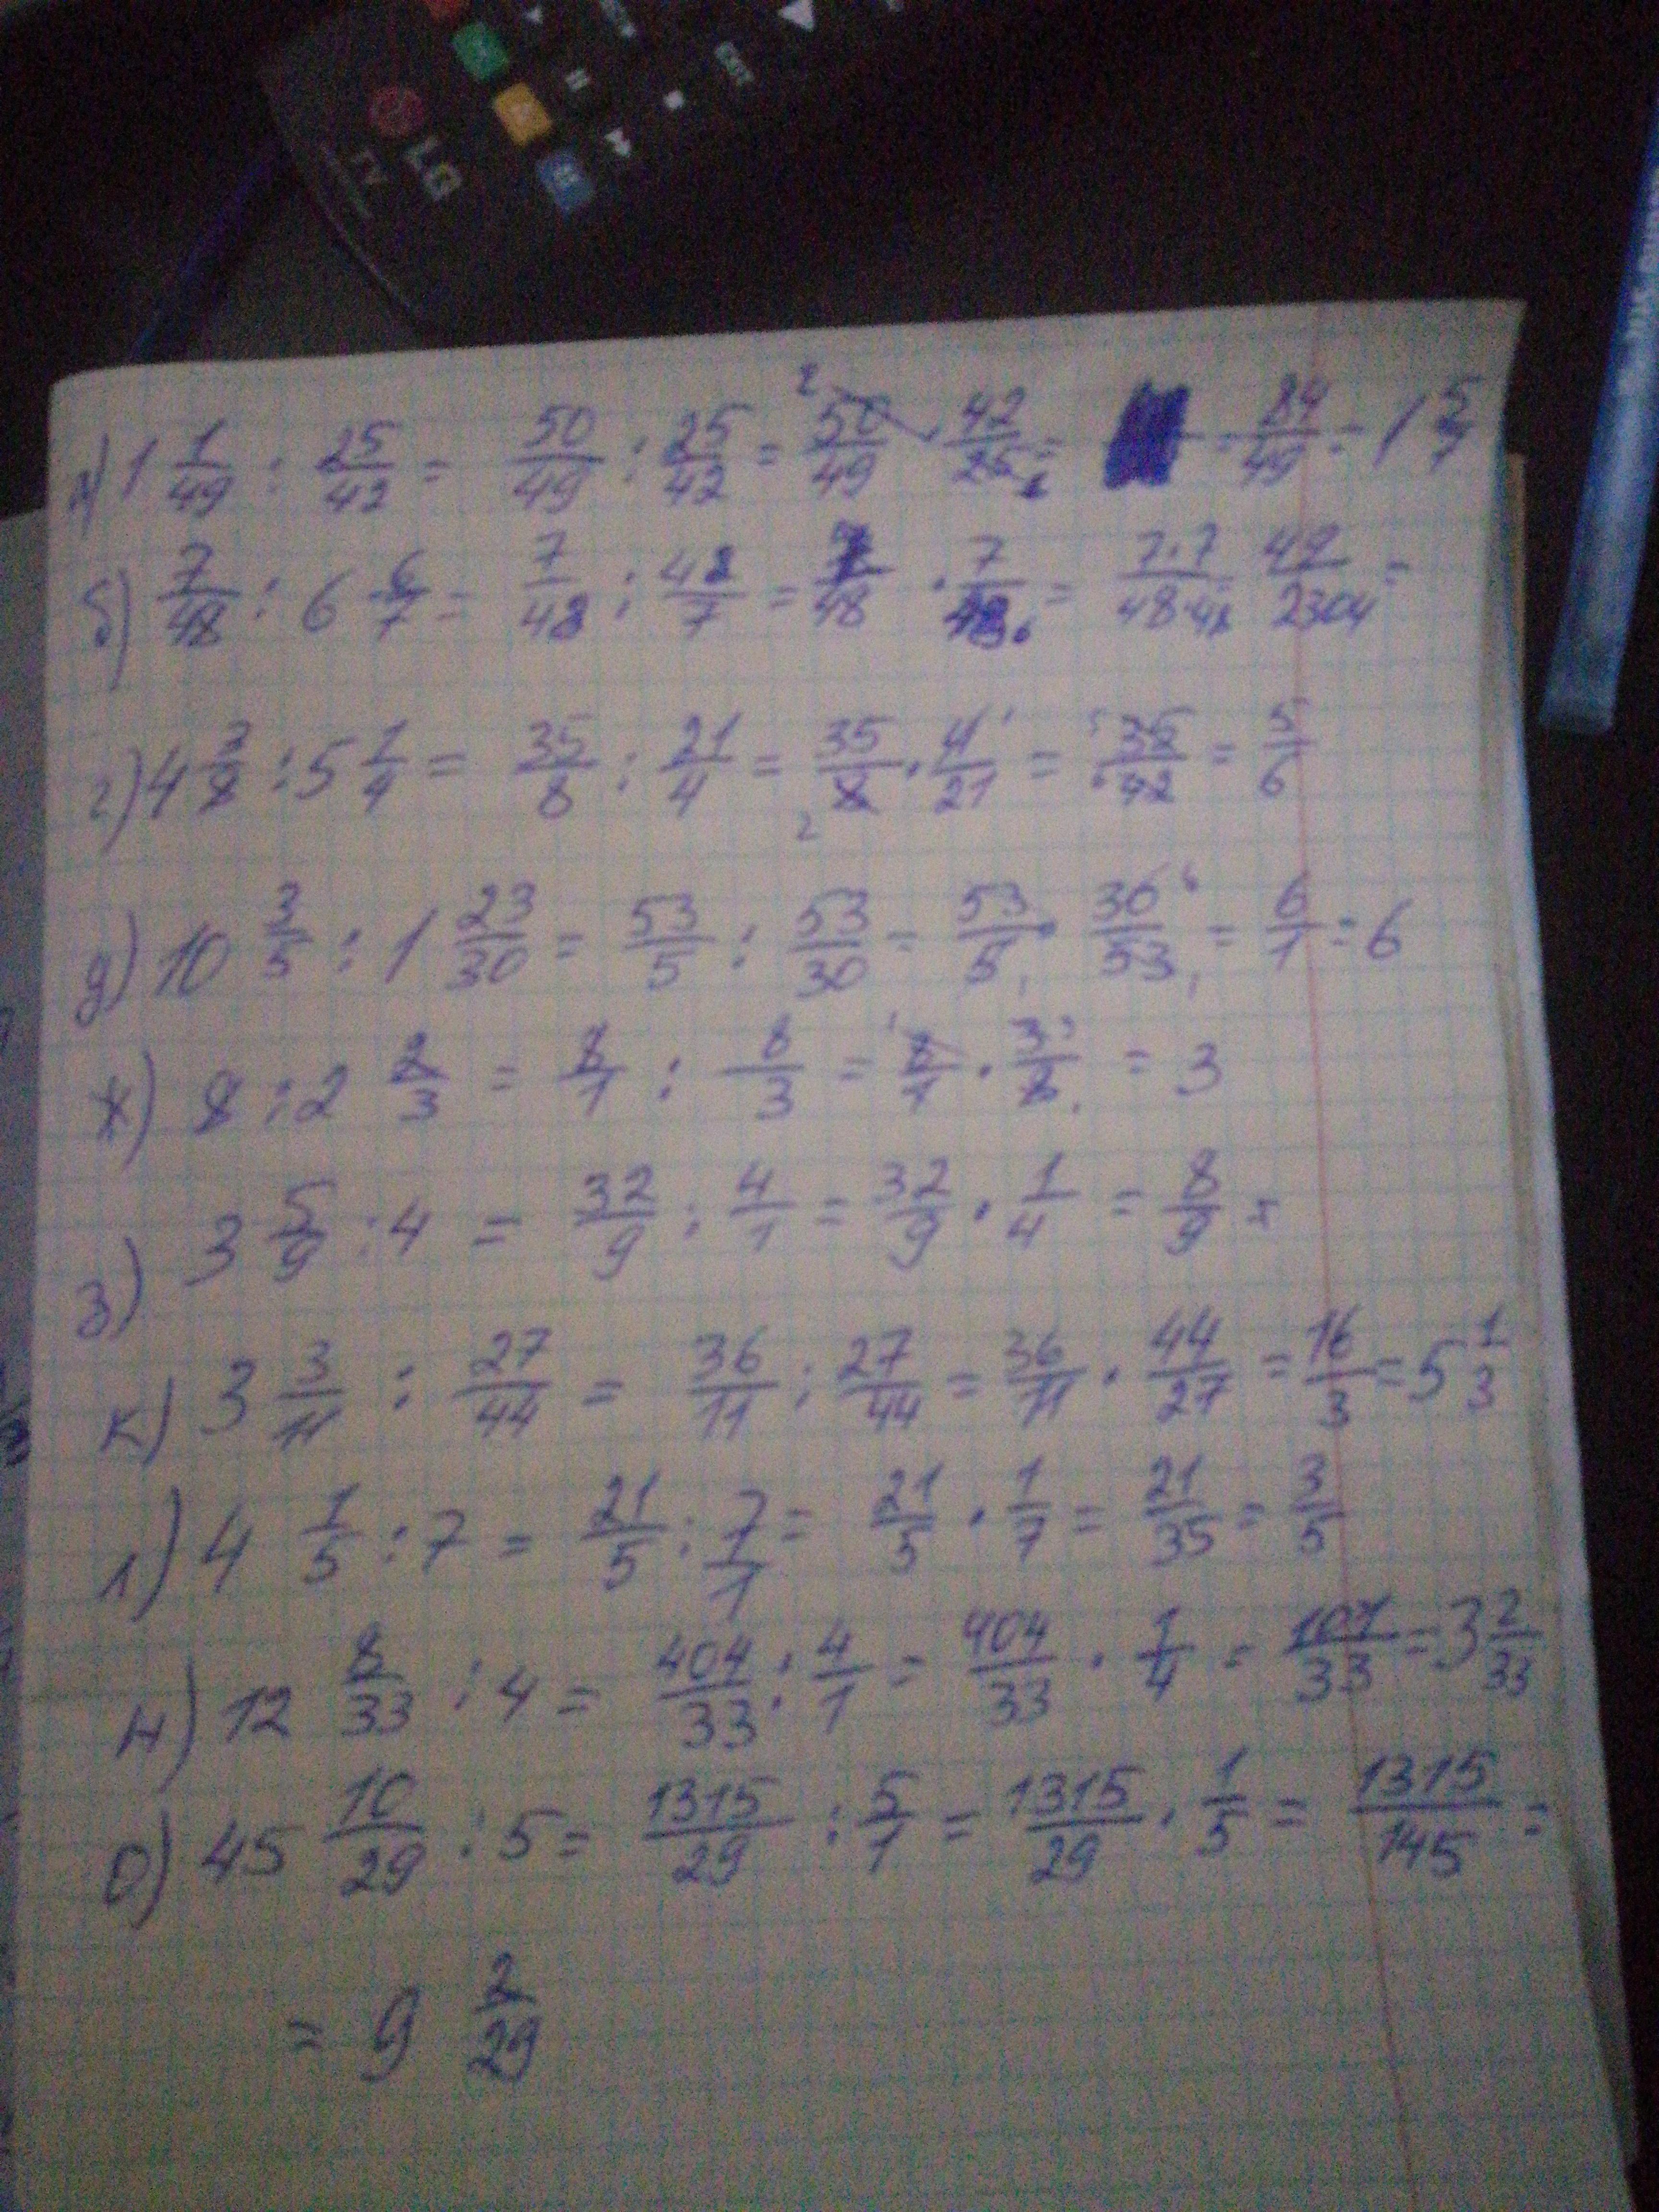 LG
TV
EXIT
а) 1 1/49 : 25/42 = 50/49 : 25/42 = 50/49 · 42/25 = = 84/49 = 1 5/7
б) 7/48 : 6 6/7 = 7/48 : 48/7 = 7/48 · 7/48 = 7·7/48·48 = 49/2304 =
г) 4 3/8 : 5 1/4 = 35/8 : 21/4 = 35/8 · 4/21 = 35/42 = 5/6
д) 10 3/5 : 1 23/30 = 53/5 : 53/30 = 53/5 · 30/53 = 6/1 = 6
ж) 8 : 2 2/3 = 8/1 : 8/3 = 8/1 · 3/8 = 3
з) 3 5/9 : 4 = 32/9 : 4/1 = 32/9 · 1/4 = 8/9 =
к) 3 3/11 : 27/44 = 36/11 : 27/44 = 36/11 · 44/27 = 16/3 = 5 1/3
л) 4 1/5 : 7 = 21/5 : 7/1 = 21/5 · 1/7 = 21/35 = 3/5
н) 12 8/33 : 4 = 404/33 : 4/1 = 404/33 · 1/4 = 101/33 = 3 2/33
о) 45 10/29 : 5 = 1315/29 : 5/1 = 1315/29 · 1/5 = 1315/145 =
= 9 2/29